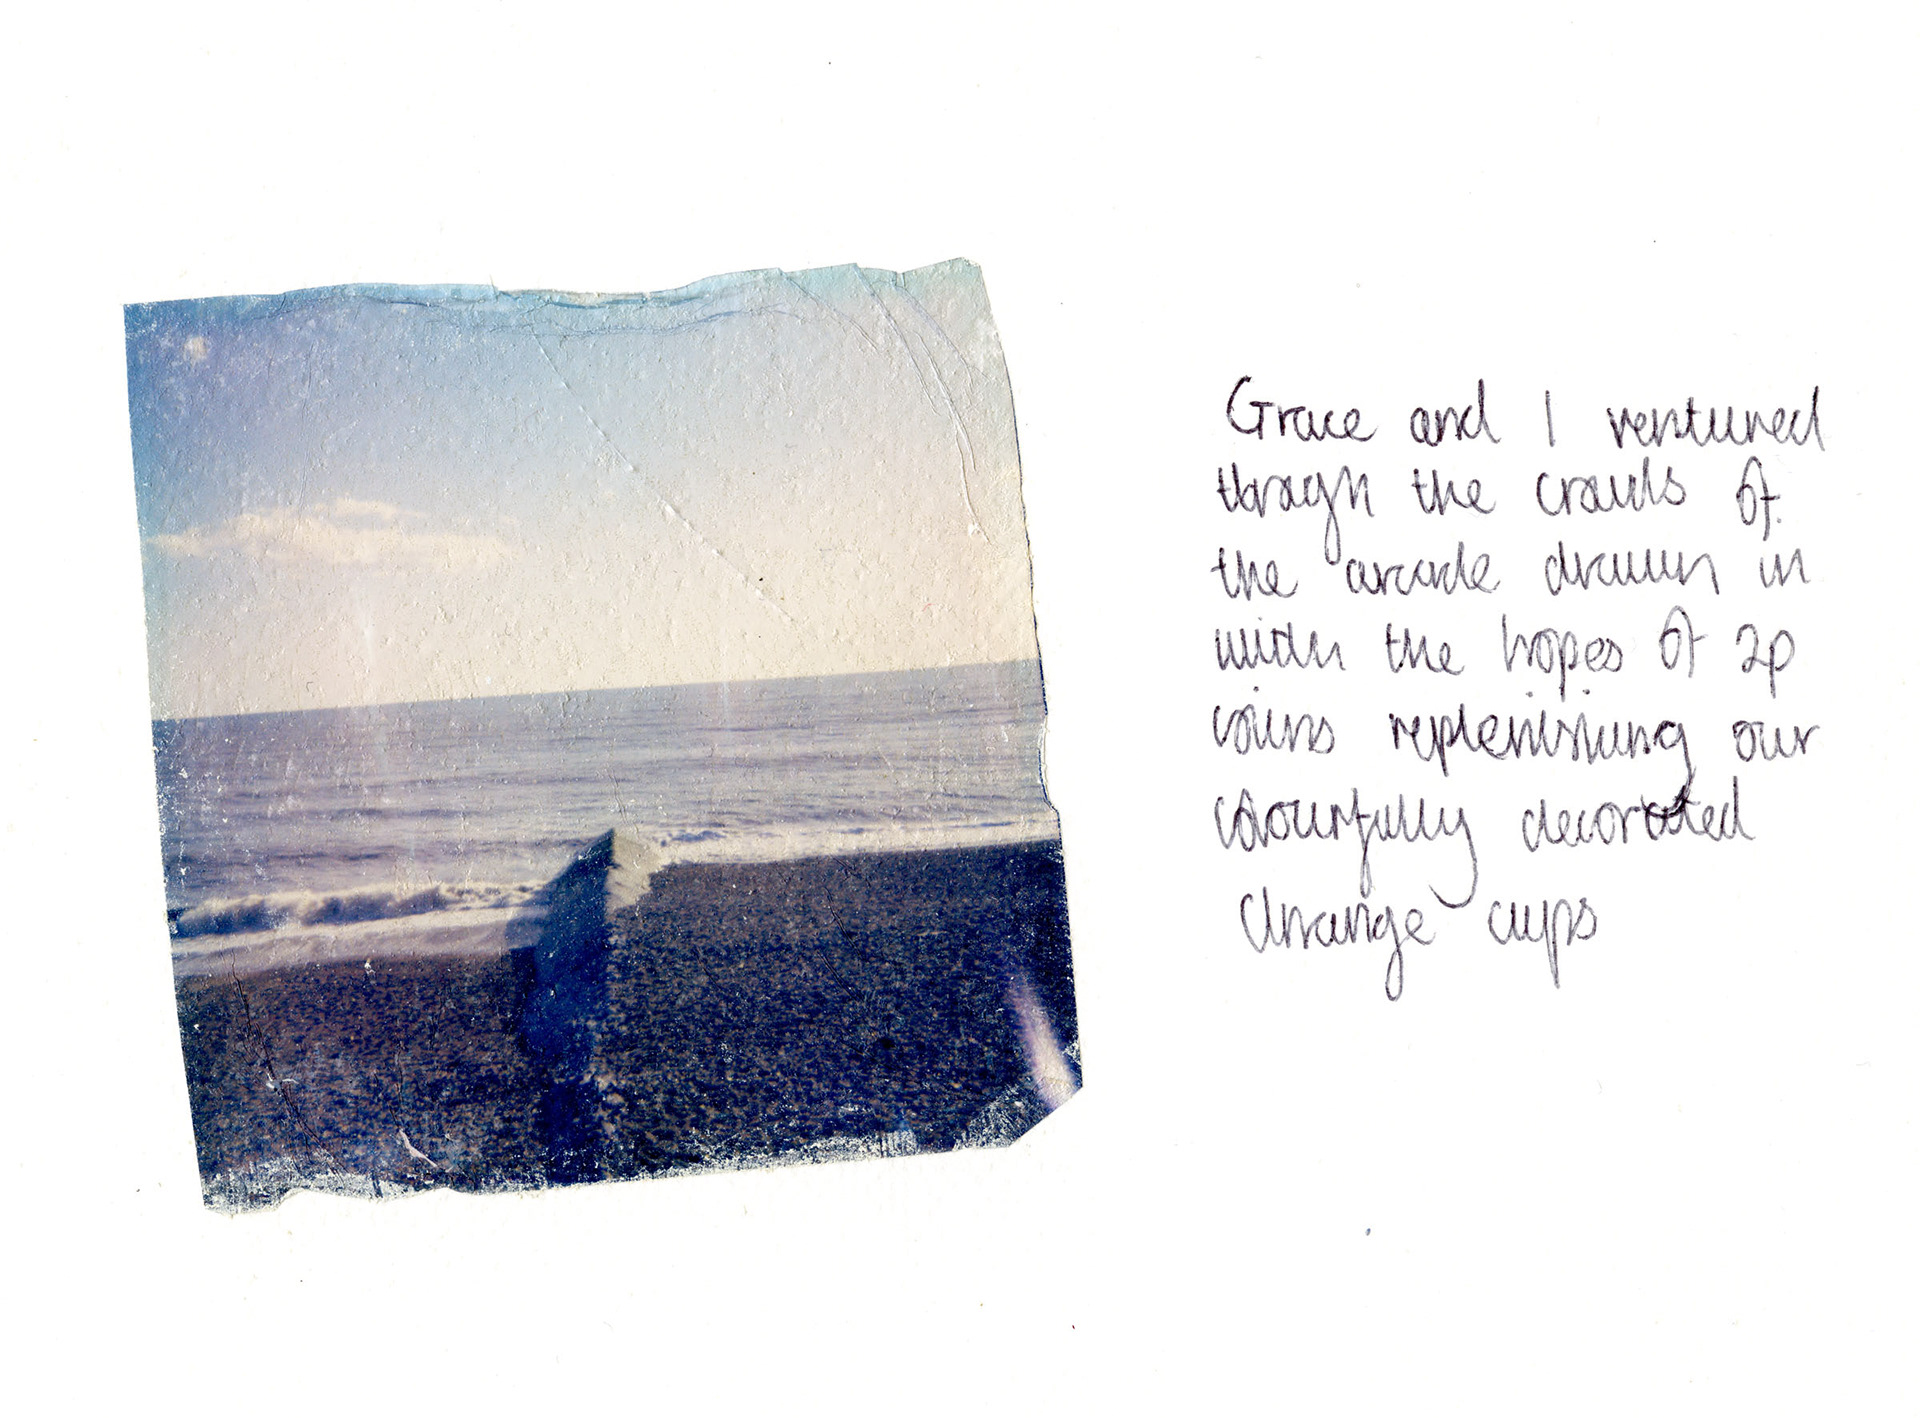 Grace and I ventured
through the crowds of
the arcade drawn in
with the hopes of 2p
coins replenishing our
colourfully decorated
change cups